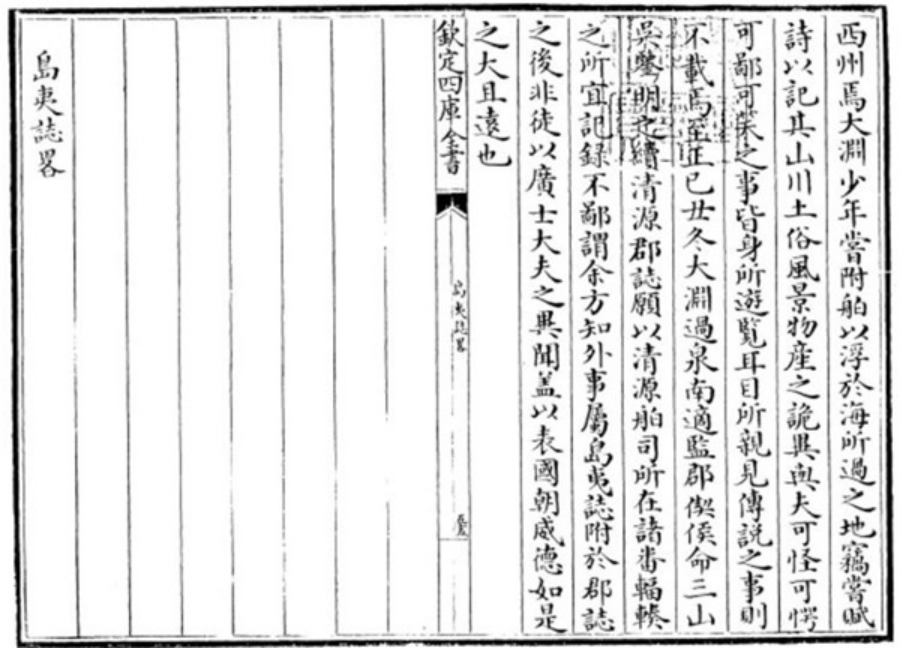 西州焉大淵少年嘗附舶以浮於海所過之地竊嘗賦
詩以記其山川土俗風景物產之詭異與夫可怪可愕
可鄙可笑之事皆身所遊覽耳目所親見傳説之事則
不載焉至正已丑冬大淵過泉南適監郡偰侯命三山
吳鑒明之續清源郡誌願以清源舶司所在諸番輻輳
之所宜記録不鄙謂余方知外事屬島夷誌附於郡誌
之後非徒以廣士大夫之異聞盖以表國朝威德如是
之大且遠也
欽定四庫全書
島夷誌畧
島夷誌畧